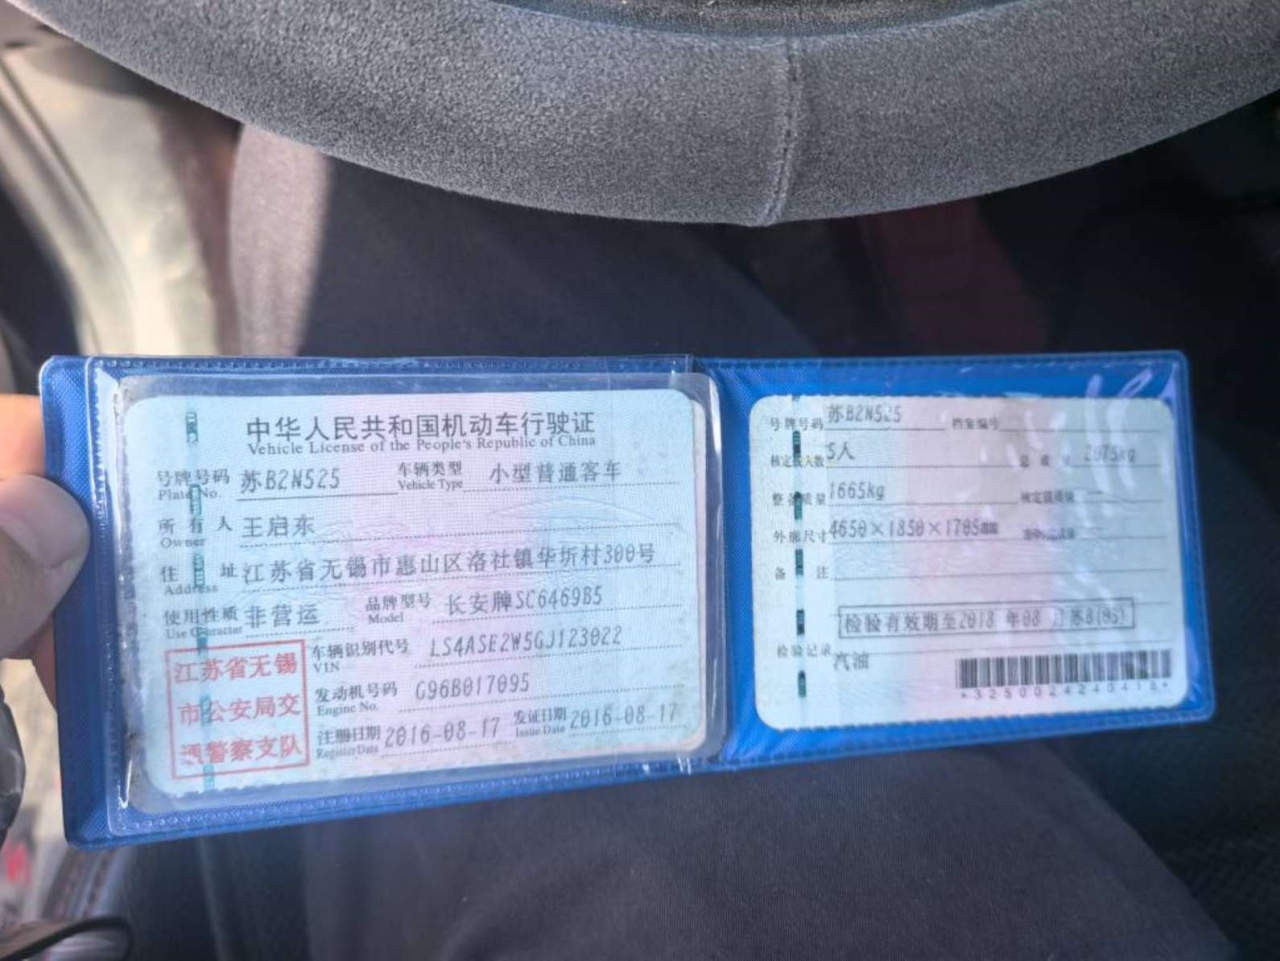 中华人民共和国机动车行驶证
Vehicle License of the People's Republic of China
号牌号码 苏B2N525 车辆类型 小型普通客车
Plate No. Vehicle Type
所有人 王启东
Owner
住址 江苏省无锡市惠山区洛社镇华圻村300号
Address
使用性质 非营运 品牌型号 长安牌SC6469B5
Use Character Model
江苏省无锡
市公安局交
通警察支队
车辆识别代号 LS4ASE2W5GJ123022
VIN
发动机号码 G96B017095
Engine No.
注册日期 2016-08-17 发证日期 2016-08-17
Register Date Issue Date
号牌号码 苏B2N525 档案编号
核定载人数 5人 总质量 2075kg
整备质量 1665kg 核定载质量
外廓尺寸 4650×1850×1705
备注
检验有效期至2018 年08 月苏B(03)
检验记录
汽油